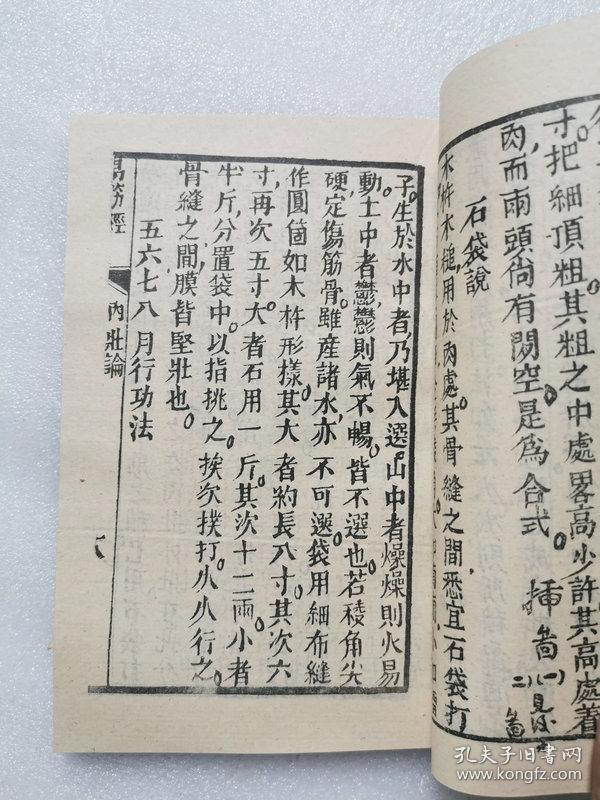 寸。把細頂粗。其粗之中處畧高少許。其高處着
肉。而兩頭尚有閒空。是爲合式。
插
啚
石袋說
木杵木槌。用於肉處。其骨縫之間。悉宜石袋打
子。生於水中者。乃堪入選。山中者燥。燥則火易
動。土中者鬱。鬱則氣不暢。皆不選也。若稜角尖
硬。定傷筋骨。雖產諸水。亦不可選。袋用細布縫
作圓筩。如木杵形樣。其大者約長八寸。其次六
寸。再次五寸。大者石用一斤。其次十二兩。小者
半斤。分置袋中。以指挑之。挨次撲打。久久行之。
骨縫之間膜皆堅壯也。
五六七八月行功法
易筋經
內壯論
孔夫子旧书网
www.kongfz.com